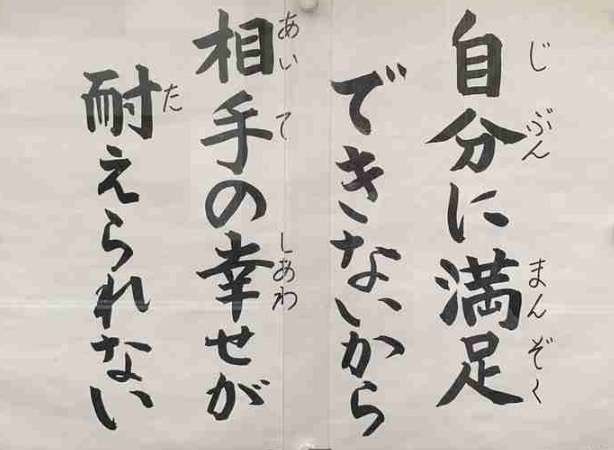 自分に満足
じぶん まんぞく
できないから
相手の幸せが
あいて しあわ
耐えられない
た